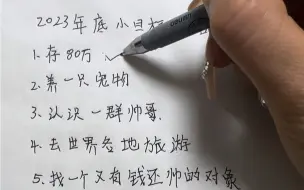 2023年底小目
1.存80万 ✓
2.养一只宠物
3.认识一群帅哥
4.去世界各地旅游
5.找一个又有钱还帅的对象